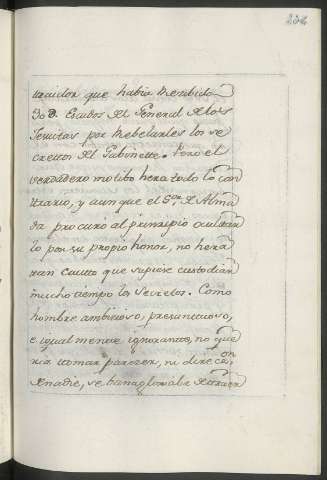 232
traidor que habia Rezibido
30 d. Escudos del General de los
Jesuitas por Rebelarles los se
cretos del Gabinette. Pero el
verdadero motibo hera todo lo con
ttrario, y aunque el S.or de Alma
da procuró al prinzipio ocultar
lo por su propio honor, no hera
tan Cautto que supiese custodiar
mucho tiempo los Secretos. Como
hombre ambicioso, presuntuoso,
e igualmente ignorante, no que
ria ttomar parezer, ni direcc.on
de nadie, se banagloriaba de traer